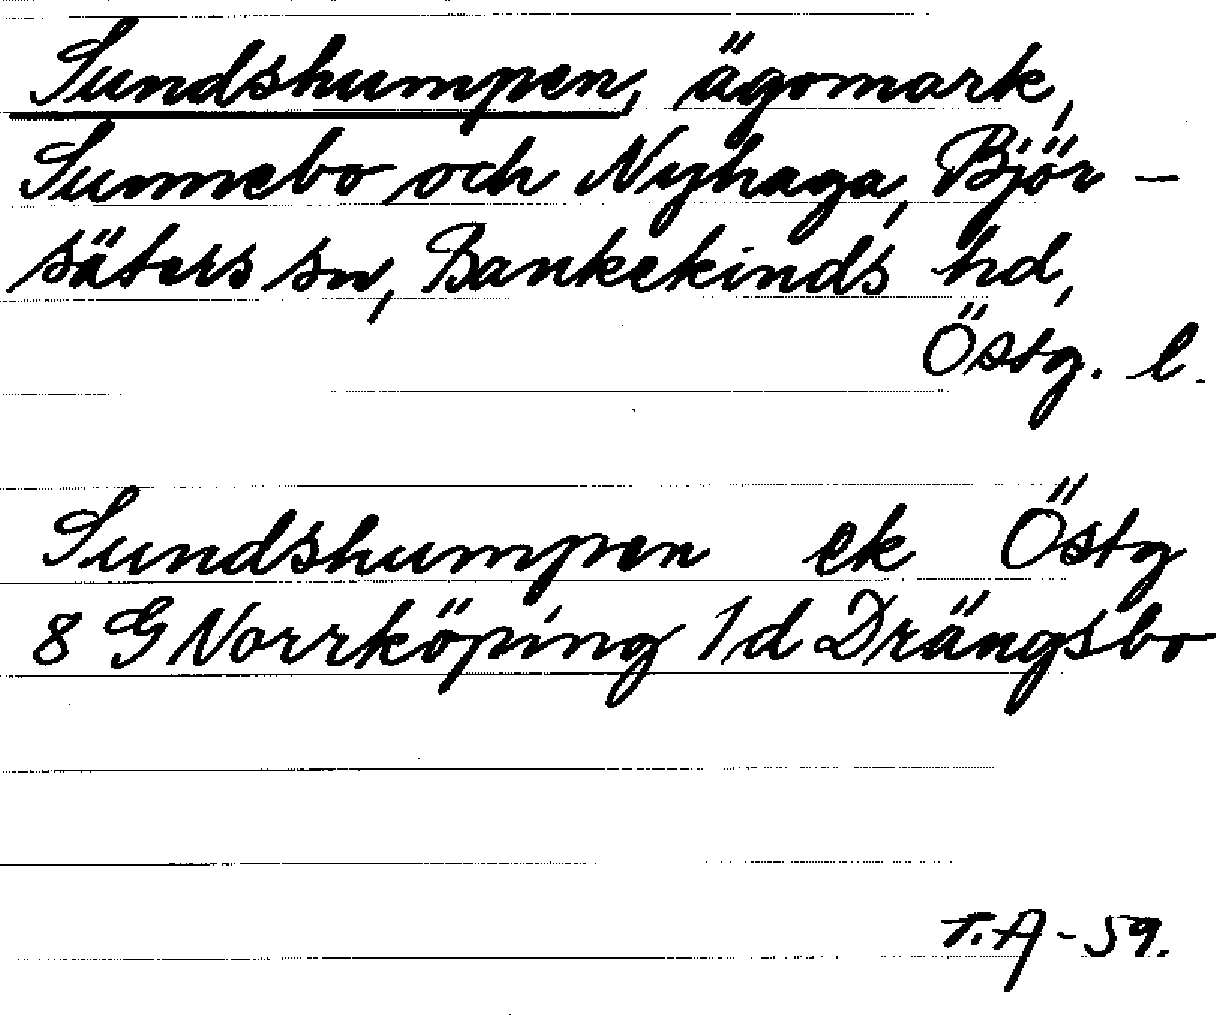 Sundshumpen, ägomark,
Sunnebo och Nyhaga, Björ-
säters sn, Bankekinds hd,
Östg. l.
Sundshumpen ek Östg
8 G Norrköping 1d Drängsbo
T.A-59.